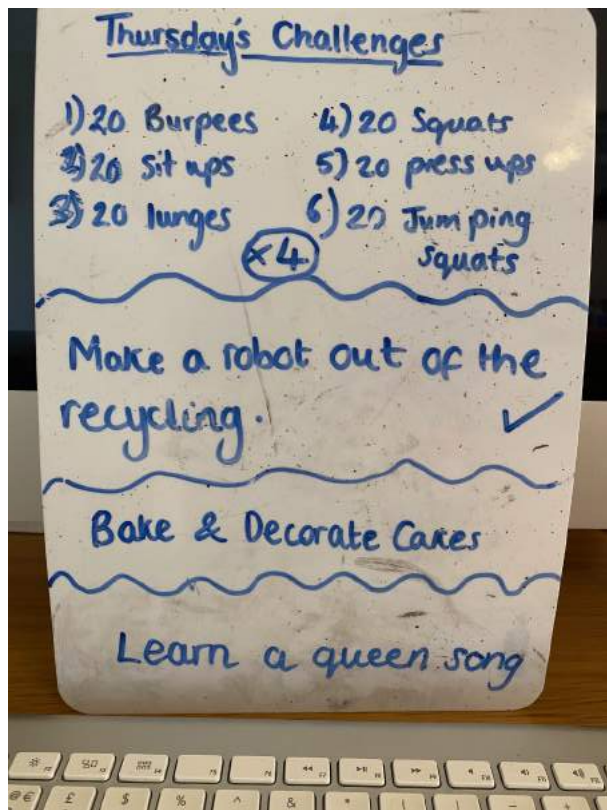 Thursday's Challenges
1) 20 Burpees
2) 20 sit ups
3) 20 lunges
4) 20 Squats
5) 20 press ups
6) 20 Jumping
squats
x4
Make a robot out of the
recycling. ✓
Bake & Decorate Cakes
Learn a queen song
F2 F3 F4 F5 F6 F7 F8 F9 F10 F11 F12
@ € £ $ % ^ & *